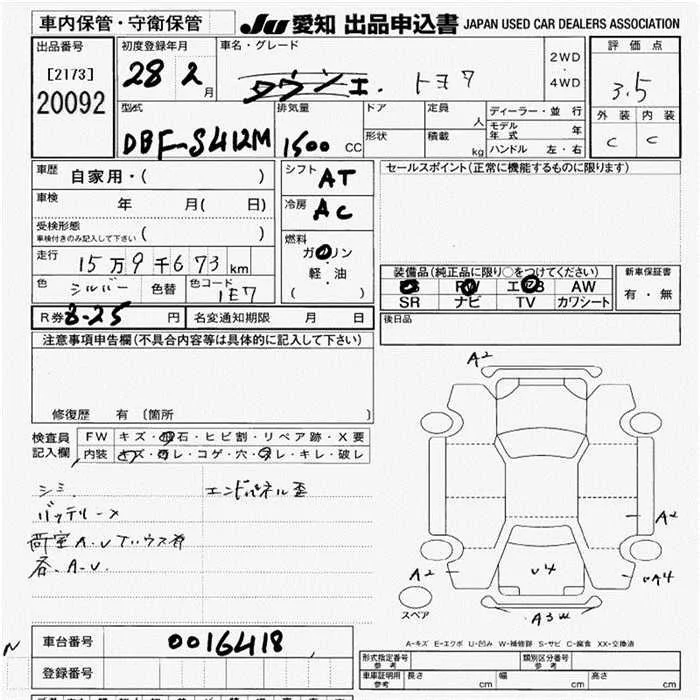 車内保管・守衛保管 JU 愛知 出品申込書 JAPAN USED CAR DEALERS ASSOCIATION
出品番号 初度登録年月 車名・グレード 2WD・4WD 評価点
[2173] 28 2月 トヨタ 3.5
20092
型式 排気量 ドア 定員 人 ディーラー・並行 外装 内装
DBF-S412M 1500 CC 形状 積載 kg モデル年式 年 C C
ハンドル 左・右
車歴 自家用・( ) シフト AT セールスポイント(正常に機能するものに限ります)
車検 年 月( 日) 冷房 AC
受検形態 車検付きのみ記入して下さい ( )
燃料 ガソリン・軽・油 ( )
走行 15万9千673km
色 シルバー 色替 色コード 1E7
装備品(純正品に限り○をつけてください) 新車保証書
PS PW エアB AW 有・無
SR ナビ TV カワシート
R券 8-25 円 名変通知期限 月 日 後日品
注意事項申告欄(不具合内容等は具体的に記入して下さい)
修復歴 有 〔箇所 〕
検査員記入欄 FW キズ・飛石・ヒビ割・リペア跡・X要
内装 キズ・ヨゴレ・コゲ・穴・スレ・キレ・破レ
シミ エンドパネル歪
バッテリーX
荷室A.UT
A-U.
A2
A2
A2
U4
A4
スペア
A3W
A-キズ E-エクボ U-凹み W-補修跡 S-サビ C-腐食 XX-交換済
N
車台番号 0016418
登録番号
形式指定番号 参考 類別区分番号 参考
車庫証明用 参考 長さ cm 幅 cm 高さ cm